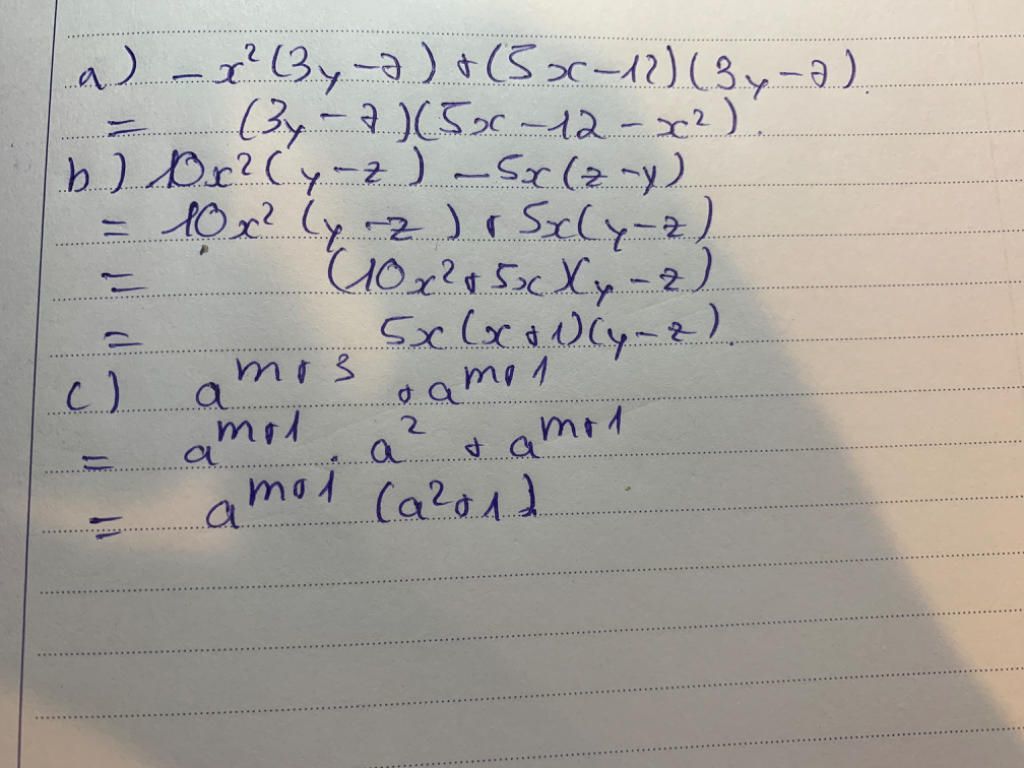 a) -x²(3y-7)+(5x-12)(3y-7).
= (3y-7)(5x-12-x²).
b) 10x²(y-z) -5x(z-y)
= 10x²(y-z)+5x(y-z)
= (10x²+5x)(y-z)
= 5x(x+1)(y-z).
c) a^{m+3} + a^{m+1}
= a^{m+1} . a² + a^{m+1}
= a^{m+1} (a²+1)